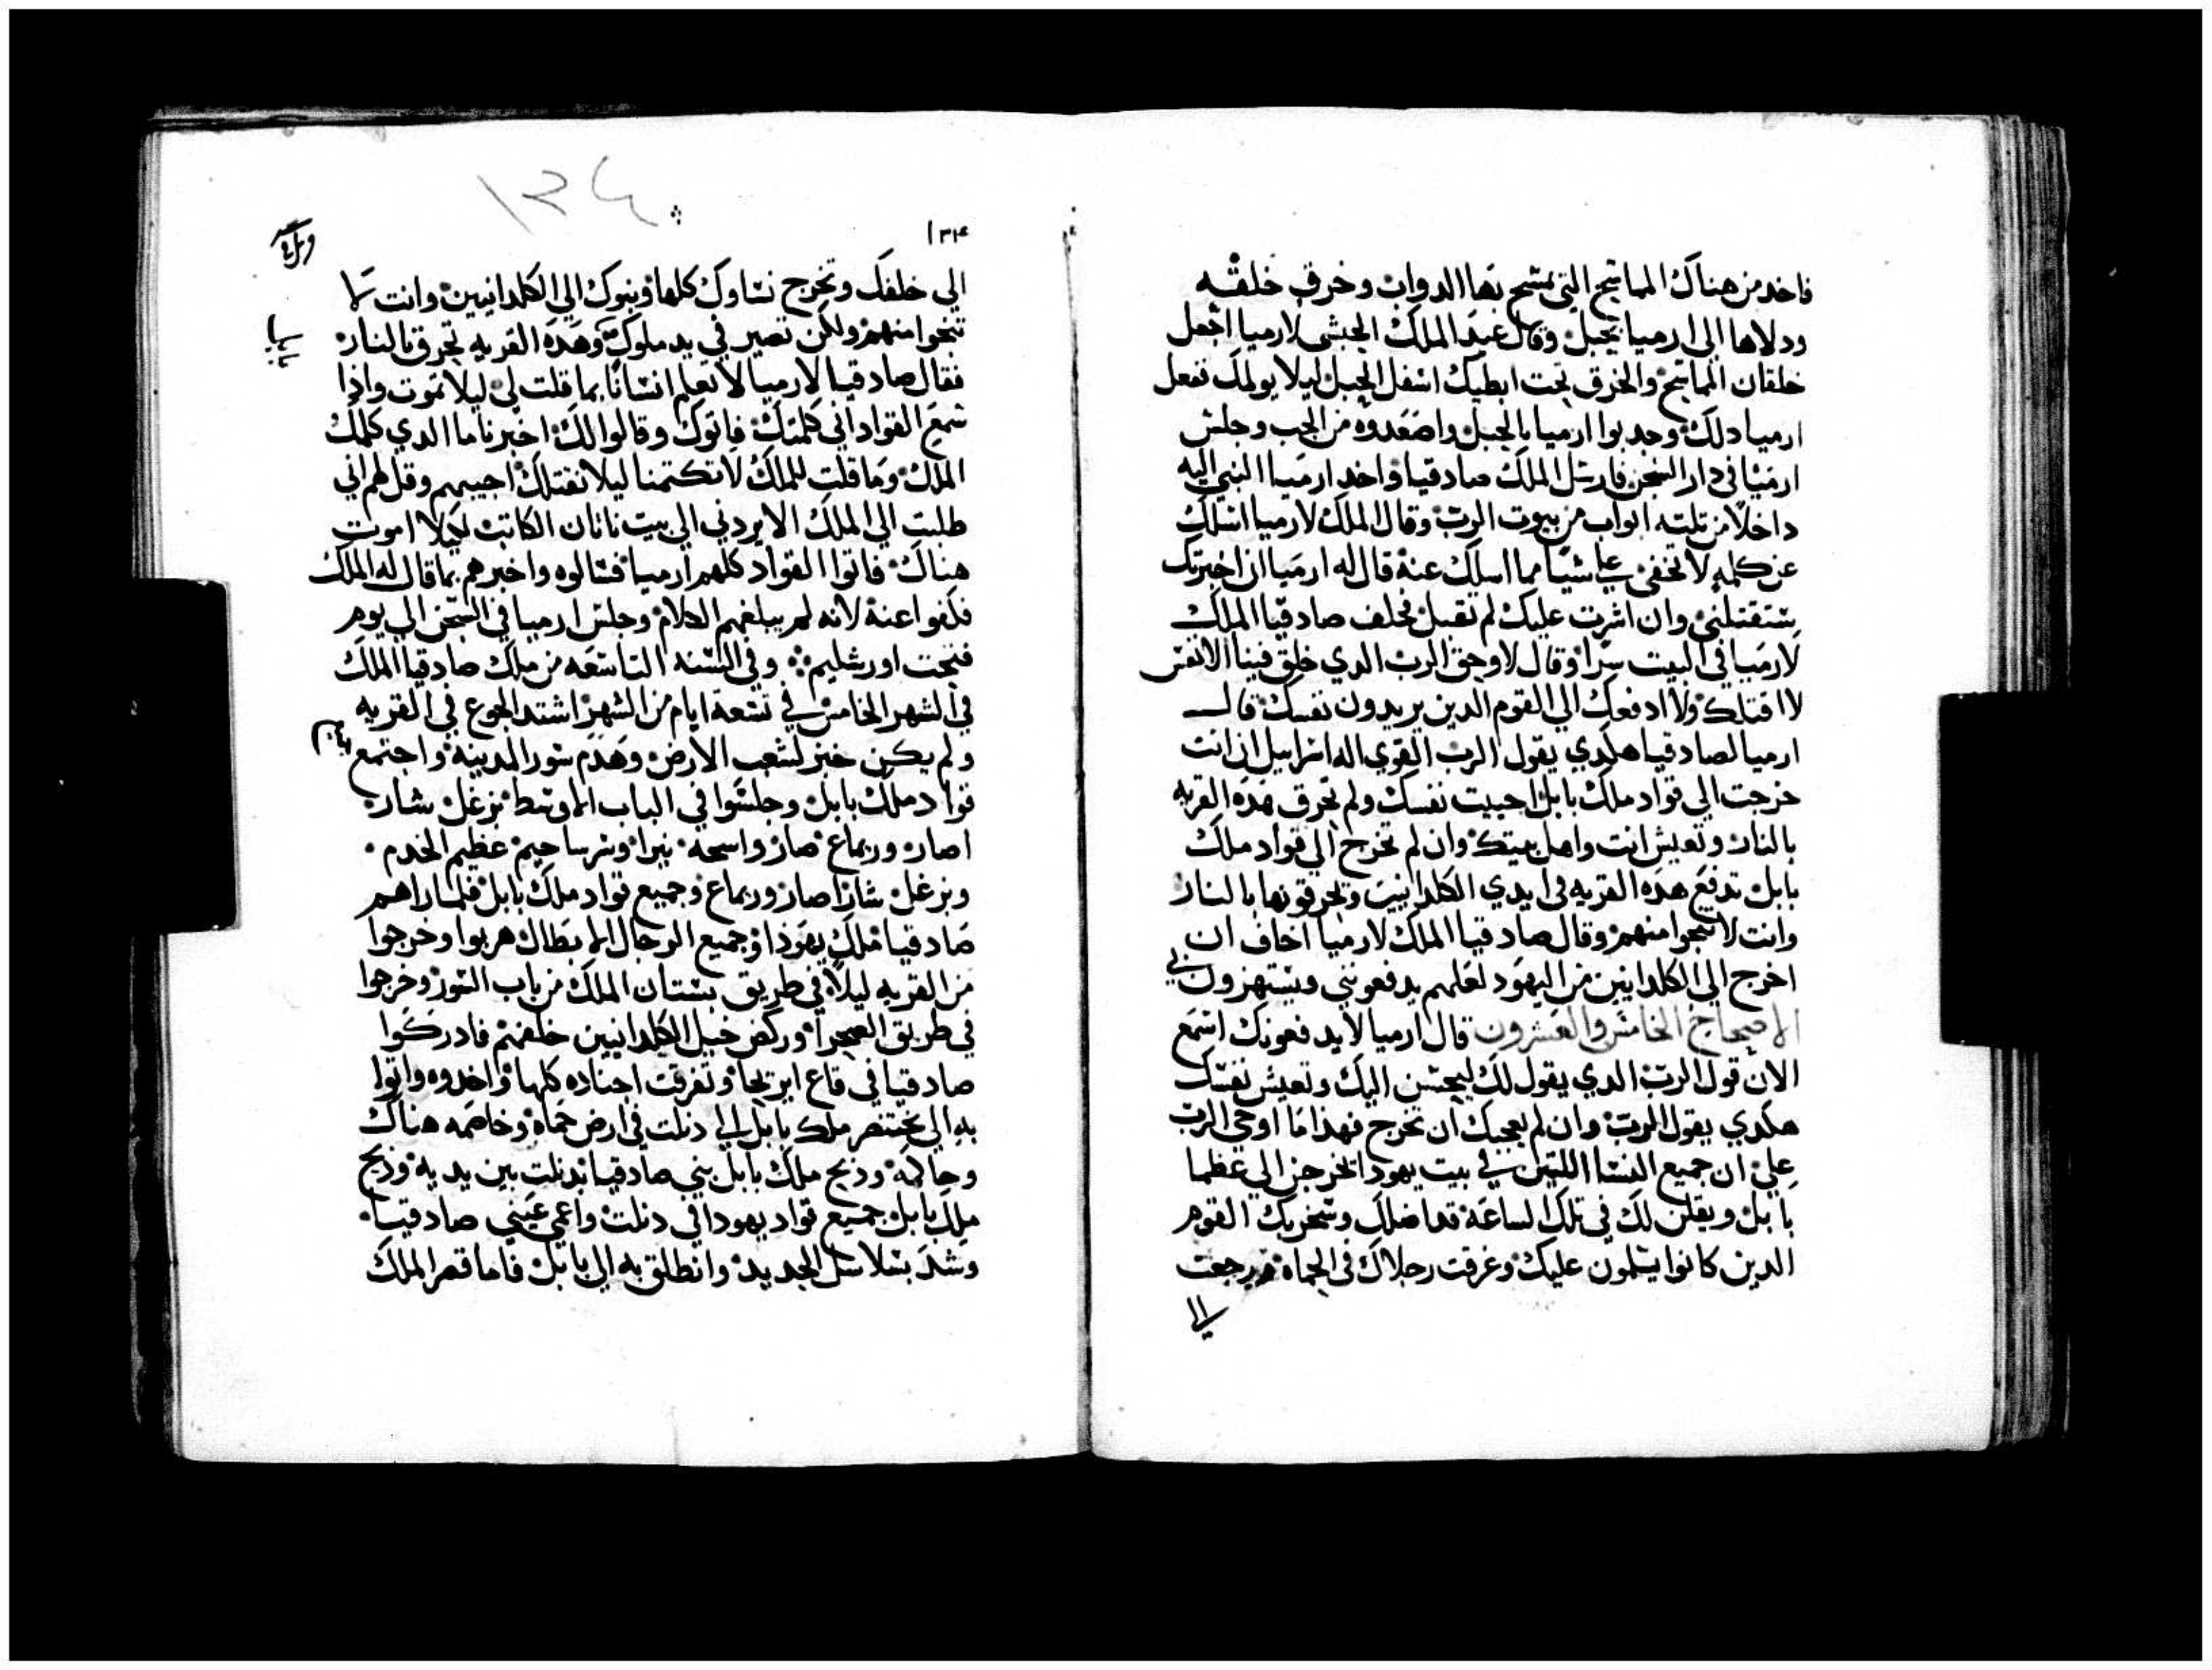 فاخد من هناك المماسح التي تمسح بها الدواب وخرق خلقه
ودلاها الي ارميا بحبل وقال عبد الملك الحبشي لارميا اجعل
خلقان المماسح والخرق تحت ابطيك اسفل الحبل ليلا يولمك ففعل
ارميا دلك وجدبوا ارميا بالحبل واصعدوه من الجب وجلس
ارميا في دار السجن فارسل الملك صادقيا واخد ارميا النبي اليه
داخلا من تلته ابواب من بيوت الرب وقال الملك لارميا اسلك
عن كلمه لا تخفي علي شيا مما اسلك عنه قال له ارميا ان اخبرتك
ستقتلني وان اشرت عليك لم تقبل فحلف صادقيا الملك
لارميا في البيت سرا وقال لا وحق الرب الدي خلق فينا الانفس
لا اقتلك ولا ادفعك الي القوم الدين يريدون نفسك قال
ارميا لصادقيا هكدي يقول الرب القوي اله اسراييل ان انت
خرجت الي قواد ملك بابل احييت نفسك ولم تحرق هده القريه
بالنار وتعيش انت واهل بيتك وان لم تخرج الي قواد ملك
بابل تدفع هده القريه في ايدي الكلدانيين ويحرقونها بالنار
وانت لا تنجوا منهم وقال صادقيا الملك لارميا اخاف ان
اخرج الي الكلدانيين من اليهود لعلهم يدفعونني ويستهزون بي
الاصحاح الخامس والعشرون قال ارميا لا يدفعونك اسمع
الان قول الرب الدي يقول لك ليحسن اليك وتعيش نفسك
هكدي يقول الرب وان لم يعجبك ان تخرج فهذا ما اوحي الرب
علي ان جميع النسا اللتين في بيت يهودا تخرجن الي عظما
بابل ويقلن لك في تلك الساعه قد اضلك وسخر بك القوم
الدين كانوا يسلمون عليك وغرقت رجلاك في الحماه ورجعت
الي
١٣٤
١٣٤
الي خلفك وتخرج نساوك كلها وبنوك الي الكلدانيين وانت لا
تنجوا منهم ولكن تصير في يد ملوك وهده القريه تحرق بالنار
فقال صادقيا لارميا لا تعلم انسانا بما قلت لي ليلا تموت واذا
سمع القواد اني كلمتك فاتوك وقالوا لك اخبرنا ما الدي كلمك
الملك وما قلت للملك لا تكتمنا ليلا نقتلك اجيبهم وقل لهم اني
طلبت الي الملك الا يردني الي بيت ناتان الكاتب لكيلا اموت
هناك فاتوا القواد كلهم ارميا فسالوه واخبرهم بما قال له الملك
فكفوا عنه لانه لم يبلغهم الكلام وجلس ارميا في السجن الي يوم
فتحت اورشليم وفي السنه التاسعه من ملك صادقيا الملك
في الشهر الخامس في تسعة ايام من الشهر اشتد الجوع في القريه
ولم يكن خبز لشعب الارض وهدم سور المدينه واجتمع
قواد ملك بابل وجلسوا في الباب الاوسط نرغل شار
اصار وربماع صار واسحه نبرا وسرساحيم عظيم الخدم
ونرغل شار اصار وربماع وجميع قواد ملك بابل فلما راهم
صادقيا ملك يهوذا وجميع الرجال الابطال هربوا وخرجوا
من القريه ليلا في طريق بستان الملك من باب السور وخرجوا
في طريق الصحرا وركض خيل الكلدانيين خلفهم فادركوا
صادقيا في قاع ايريحا وتفرقت اجناده كلها واخدوه واتوا
به الي بختنصر ملك بابل الي دبلت في ارض حماه وخاصمه هناك
وحاكمه وذبح ملك بابل بني صادقيا بدبلت بين يديه وذبح
ملك بابل جميع قواد يهودا في دبلت واعمي عيني صادقيا
وشد بسلاسل الحديد وانطلق به الي بابل فاما قصر الملك